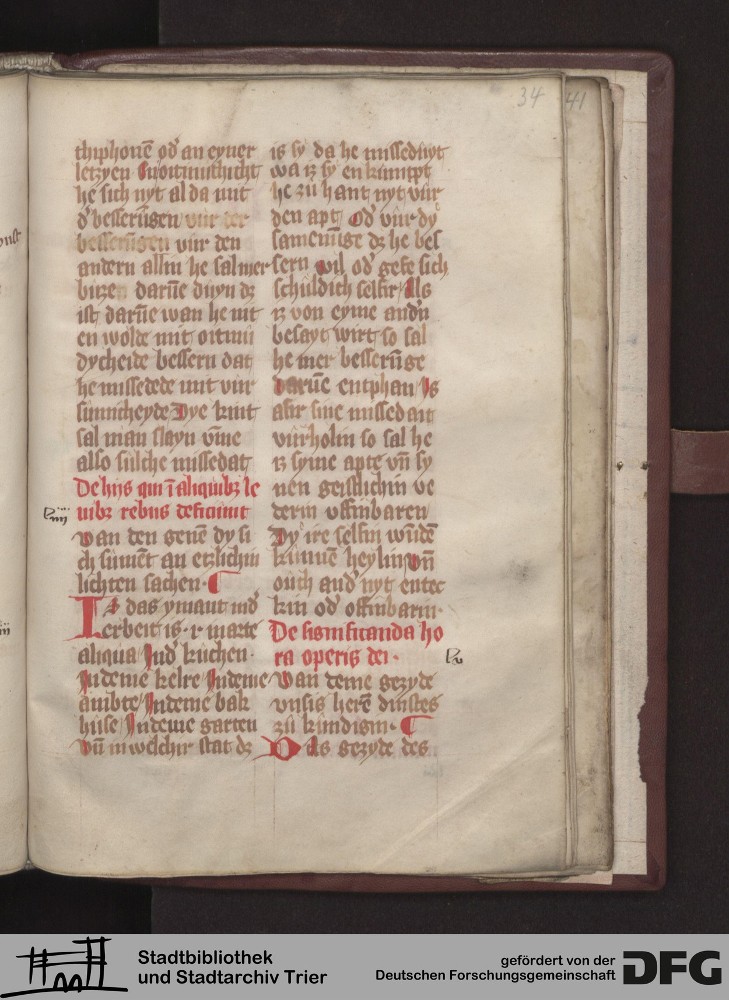 34 41
thiphonē od̕ an eyner
letzyen Oitmuthicht
he sich nyt al da mit
d̕ besserūgen vur der
besserūgen vur den
andern allin he sal mer
buze darūe duyn dz
ist darūe wan he nit
en wolde mit oitmu
dycheide bessern dat
he missedede mit vur
sumicheyde Dye kint
sal man slayn vm̄e
also sulche missedat
De hijs qui ī aliquibz le
uibz rebus deficiunt
van den genē dy si
ch sumēt an etzlichin
lichten sachen
Is das ymant ind̕
erbeit is
aliqua Ind̕ kuchen
Indeme kelre Indeme
ambte Indeme bak
huse Indeme garten
vn̄ in welchir stat dz
is sy da he misseduyt
wa iz sy en kumppt
he zu hant nyt vur
den apt od̕ vur dy
samenūge dz he bes
sern wil od̕ gebe sich
schuldich selbir Als
iz von eyme and̕n
besayt wirt so sal
he mer besserūge
darūe entphan Is
abir sine missedait
vurholin so sal he
iz syme apte vn̄ sy
nen geistlichin ve
derin uffinbaren
Dy ire selbin wūdē
kunnē heylin vn̄
ouch and̕ nyt entec
kin od̕ offinbarin
De significanda ho
ra operis dei
Van deme gezyde
vnsis herē dinstes
zu kundigin
Das gezyde des
Stadtbibliothek
und Stadtarchiv Trier
gefördert von der
Deutschen Forschungsgemeinschaft
DFG